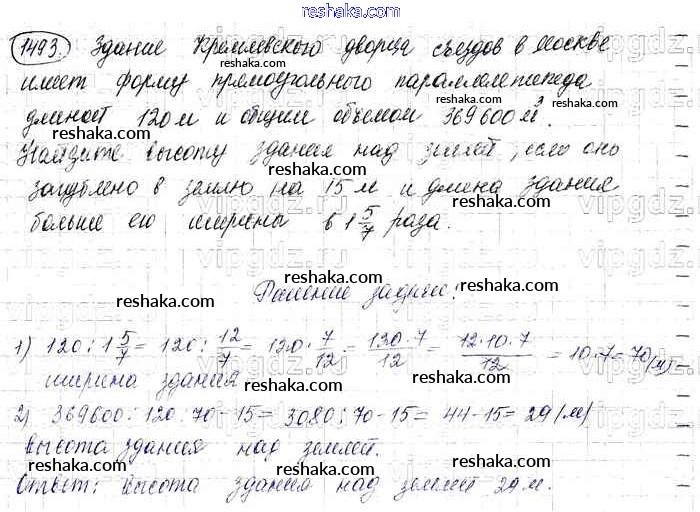 reshaka.com
1493. Здание Кремлевского дворца съездов в Москве
имеет форму прямоугольного параллелепипеда
reshaka.com
длиной 120 м и общим объемом 369600 м³.
reshaka.com
Найдите высоту здания над землей, если оно
vipgdz.
заглублено в землю на 15 м и длина здания
reshaka.com
больше его ширины в 1 5/7 раза.
vipgdz. vipgdz. vipgdz.
reshaka.com
Решение задачи:
reshaka.com
1) 120 : 1 5/7 = 120 : 12/7 = 120 · 7/12 = 120·7/12 = 12·10·7/12 = 10·7 = 70 (м) –
ширина здания
reshaka.com
2) 369600 : 120 : 70 – 15 = 3080 : 70 – 15 = 44 – 15 = 29 (м)
высота здания над землей.
reshaka.com
Ответ: высота здания над землей 29 м.
reshaka.com